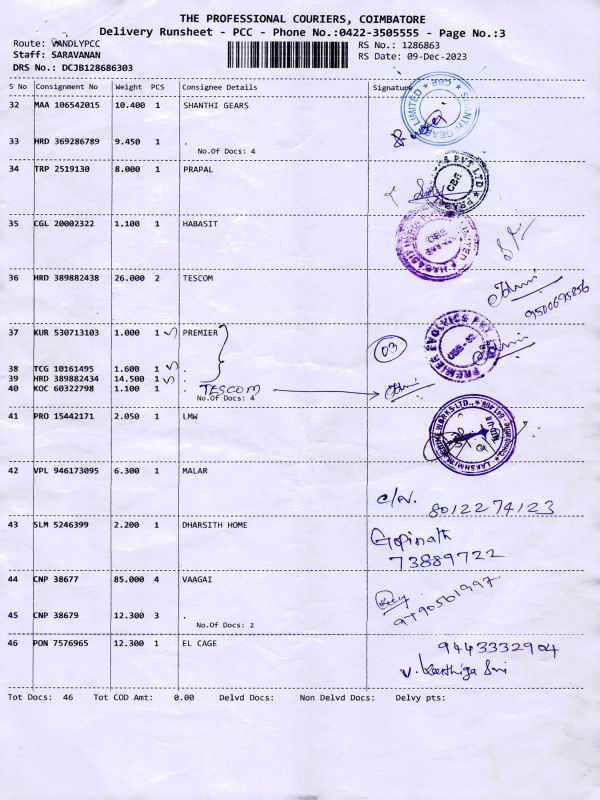 THE PROFESSIONAL COURIERS, COIMBATORE
Delivery Runsheet - PCC - Phone No.:0422-3505555 - Page No.:3
Route: VANDLYPCC RS No.: 1286863
Staff: SARAVANAN RS Date: 09-Dec-2023
DRS No.: DCJB128686303
S No Consignment No Weight PCS Consignee Details Signature
32 MAA 106542015 10.400 1 SHANTHI GEARS
33 HRD 369286789 9.450 1 .
No.Of Docs: 4
34 TRP 2519130 8.000 1 PRAPAL
35 CGL 20002322 1.100 1 HABASIT
36 HRD 389882438 26.000 2 TESCOM
9500695856
37 KUR 530713103 1.000 1 PREMIER
03
PREMIER EVOLVICS PVT LTD
38 TCG 10161495 1.600 1 .
39 HRD 389882434 14.500 1 .
40 KOC 60322798 1.100 1 . TESCOM
No.Of Docs: 4
41 PRO 15442171 2.050 1 LMW
42 VPL 946173095 6.300 1 MALAR
8012274123
43 SLM 5246399 2.200 1 DHARSITH HOME
Gopinath
73889722
44 CNP 38677 85.000 4 VAAGAI
45 CNP 38679 12.300 3 .
No.Of Docs: 2
46 PON 7576965 12.300 1 EL CAGE
9443332904
Tot Docs: 46 Tot COD Amt: 0.00 Delvd Docs: Non Delvd Docs: Delvy pts: